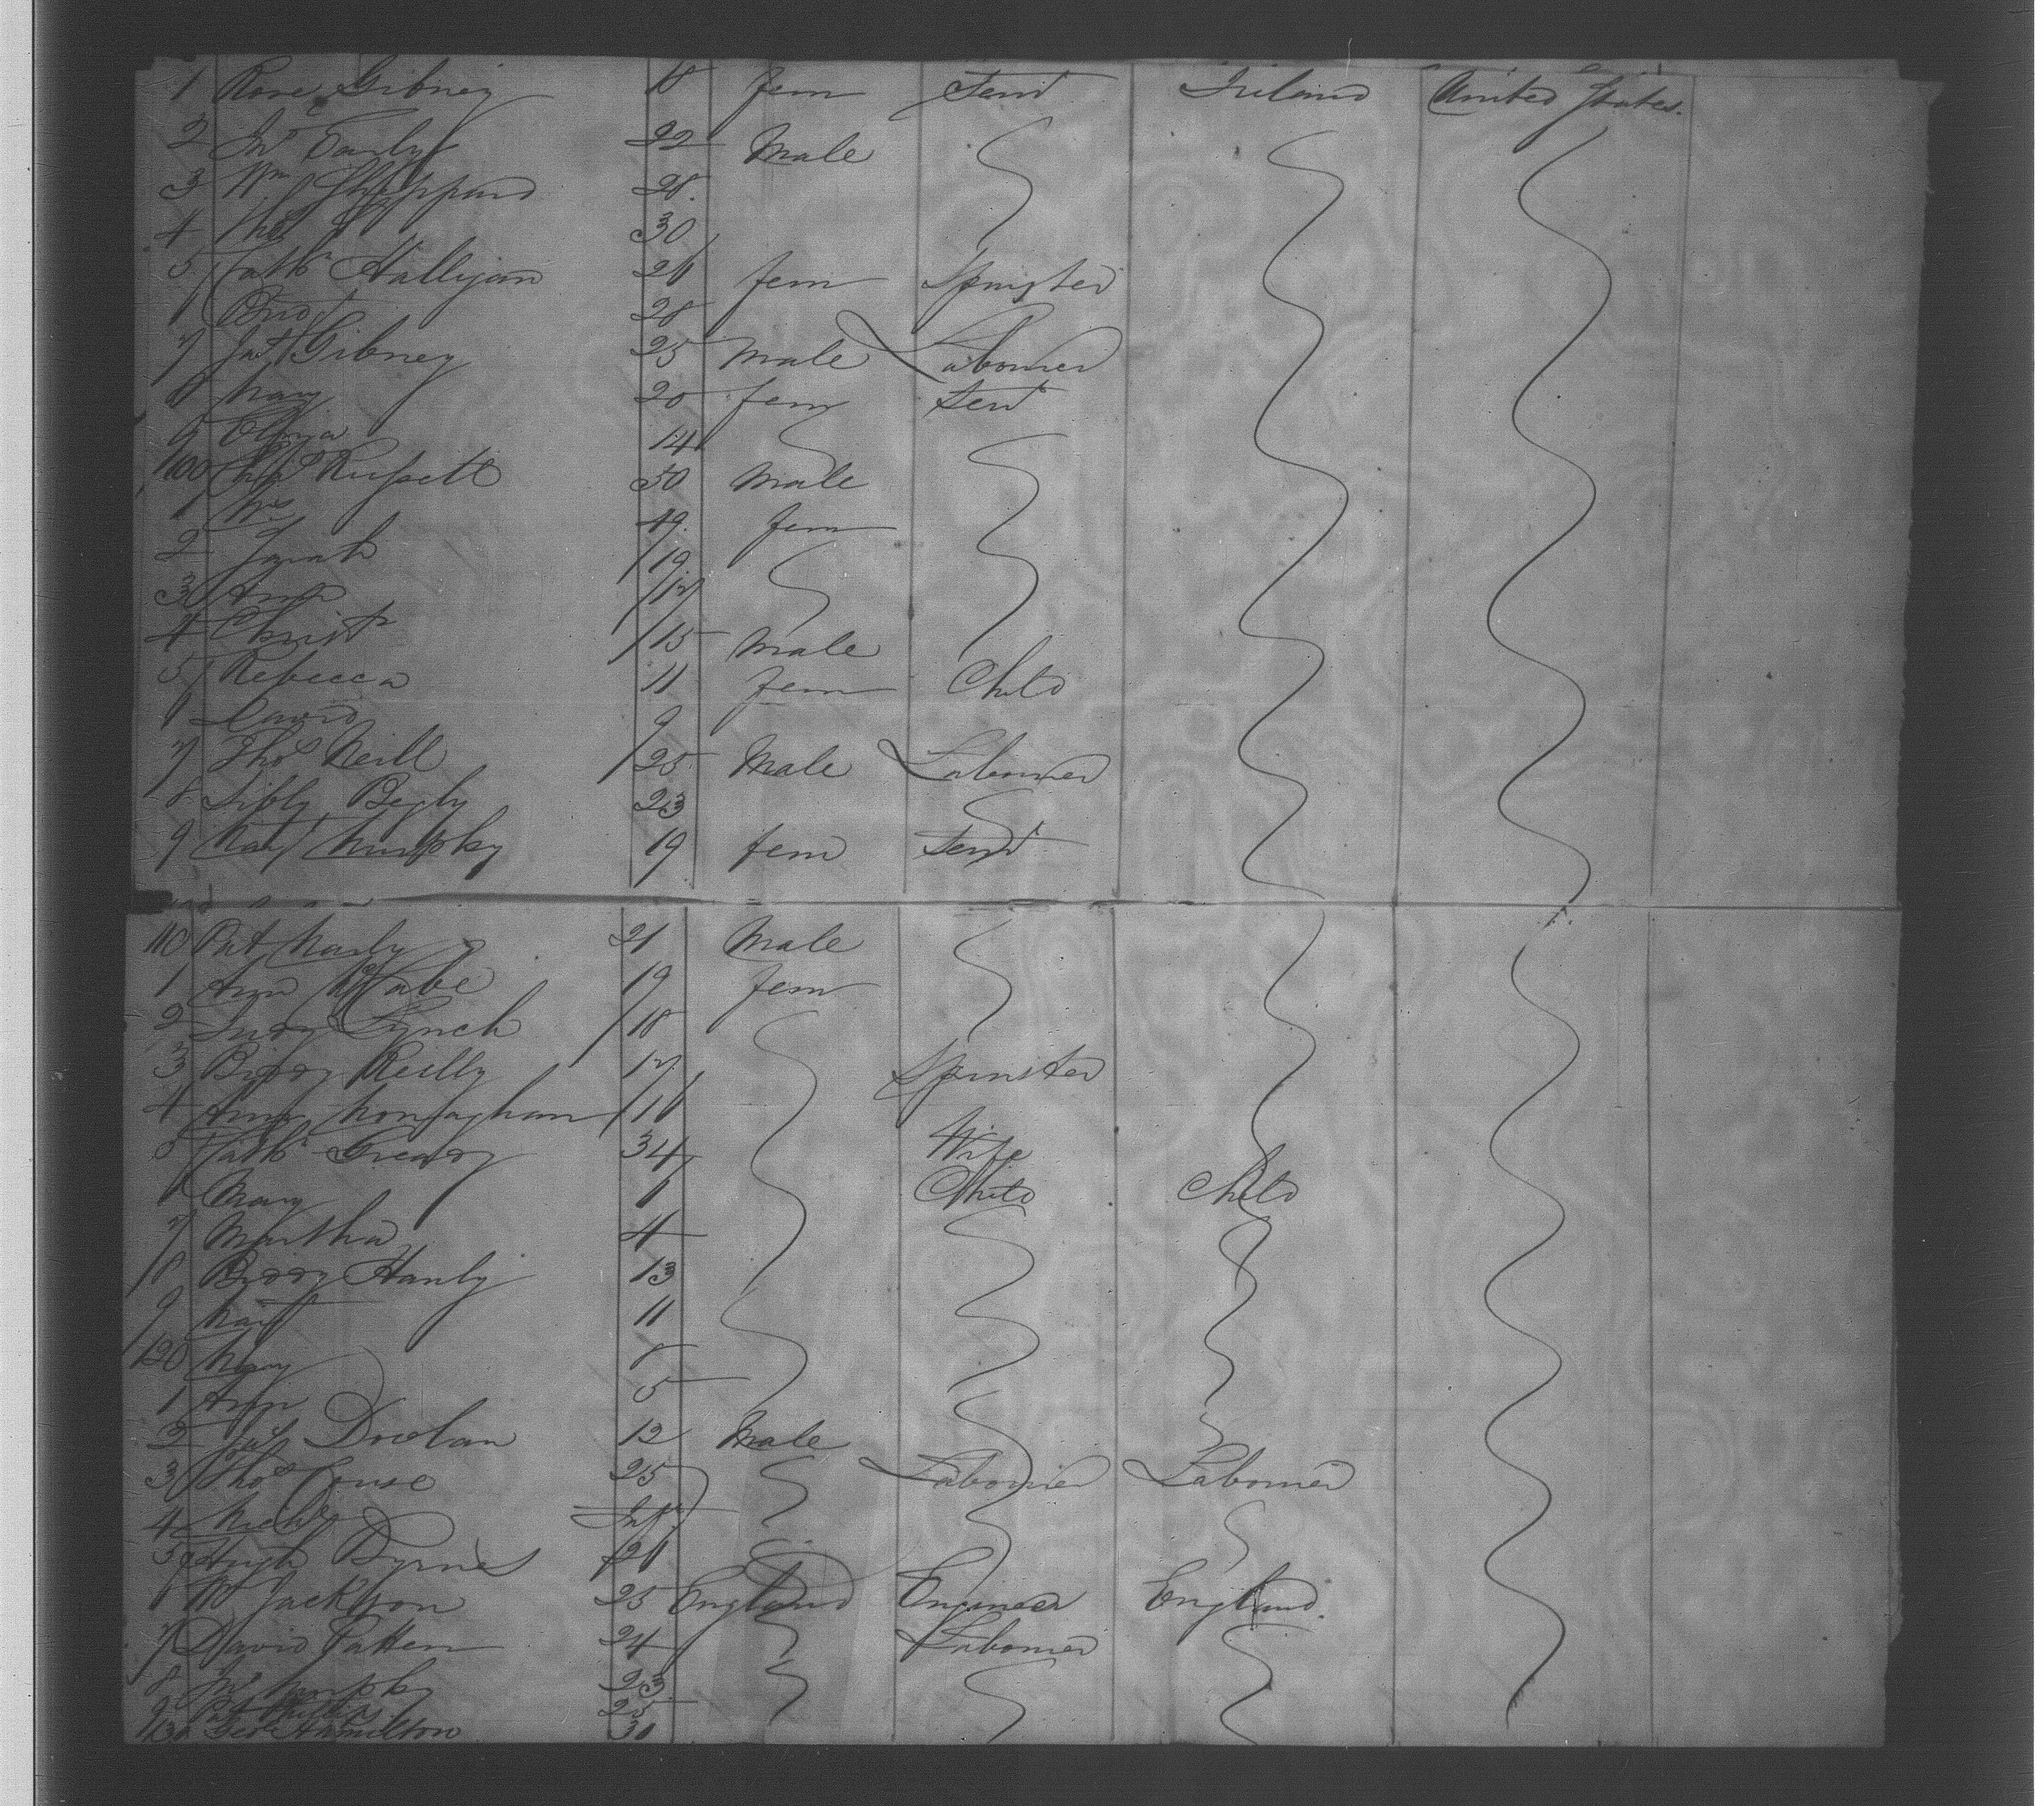 1 Rose Gibney 18 fem Servt Ireland United States.
2 Jno 22 Male
3 Wm Sheppard 28.
4 Thos 30
5 Cathe Halligan 26 fem Spinster
6 Brid 28
7 Jas Gibney 25 Male Labourer
8 Mary 20 fem Servt
9 Eliza 14
100 Russell 50 Male
1 Mrs 49. fem
2 Sarah 19
3 Ann 17
4 Christr 15 Male
5 Rebecca 11 fem Child
6 David 9
7 Thos Neill 25 Male Labourer
8 Sibly Begly 23
9 Murphy 19 fem Servt
110 Pat 21 Male
1 Ann McCabe 19 fem
2 Judy Lynch 18
3 Biddy Reilly 17 Spinster
4 Monaghan 16
5 Cathe Gready 34 Wife
6 Mary 6 Child Child
7 Martha 4
8 Biddy Hanly 13
9 11
120 Mary 8
1 Ann 5
2 Jas Dowlan 12 Male
3 Thos 25 Labourer Labourer
4 Michl Inft
5 Hugh Byrne 26
6 Wm Jackson 25 England Engineer England.
7 David Patten 24 Labourer
8 Jno Murphy 23
9 Pat 25
130 Geo Hamilton 30